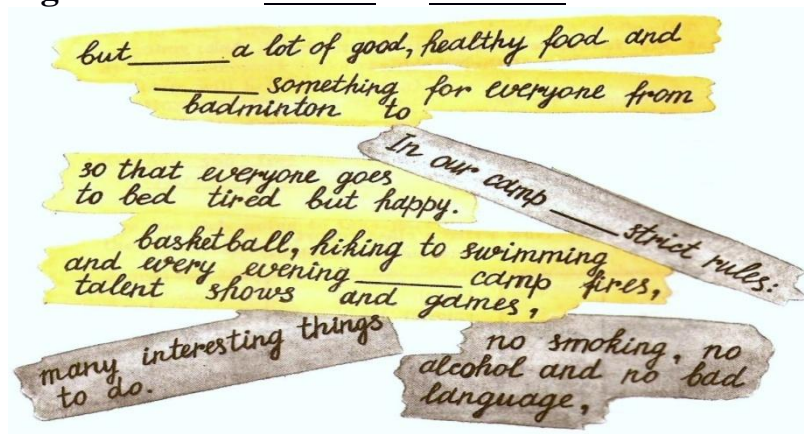 but______a lot of good, healthy food and
______something for everyone from
badminton to
In our camp ____ strict rules:
so that everyone goes
to bed tired but happy.
basketball, hiking to swimming
and every evening______camp fires,
talent shows and games,
many interesting things
to do.
no smoking, no
alcohol and no bad
language,